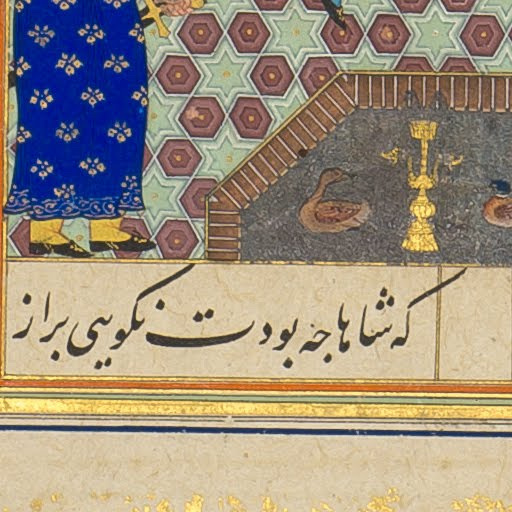 که شاها جه بودت نکویی براز